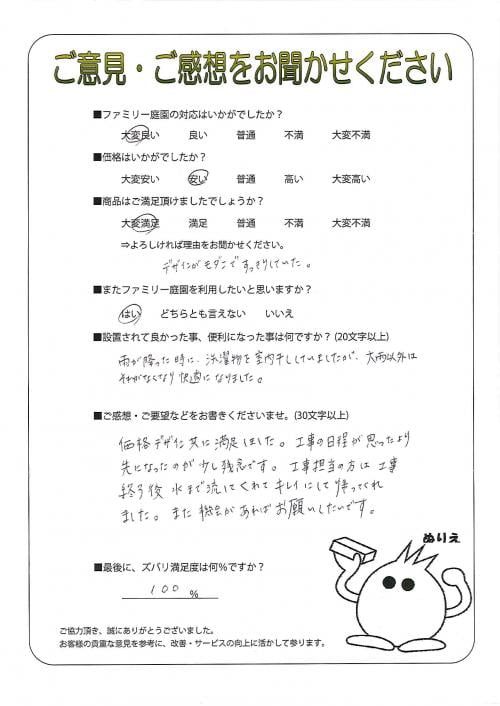 ご意見・ご感想をお聞かせください
■ファミリー庭園の対応はいかがでしたか？
大変良い 良い 普通 不満 大変不満
■価格はいかがでしたか？
大変安い 安い 普通 高い 大変高い
■商品はご満足頂けましたでしょうか？
大変満足 満足 普通 不満 大変不満
⇒よろしければ理由をお聞かせください。
デザインがモダンですっきりしていた。
■またファミリー庭園を利用したいと思いますか？
はい どちらとも言えない いいえ
■設置されて良かった事、便利になった事は何ですか？(20文字以上)
雨が降った時に、洗濯物を室内干ししていましたが、大雨以外は
それがなくなり快適になりました。
■ご感想・ご要望などをお書きくださいませ。(30文字以上)
価格デザイン共に満足しました。工事の日程が思ったより
先になったのが少し残念です。工事担当の方は工事
終了後水まで流してくれてキレイにして帰ってくれ
ました。また機会があればお願いしたいです。
ぬりえ
■最後に、ズバリ満足度は何％ですか？
100 %
ご協力頂き、誠にありがとうございました。
お客様の貴重な意見を参考に、改善・サービスの向上に活かして参ります。